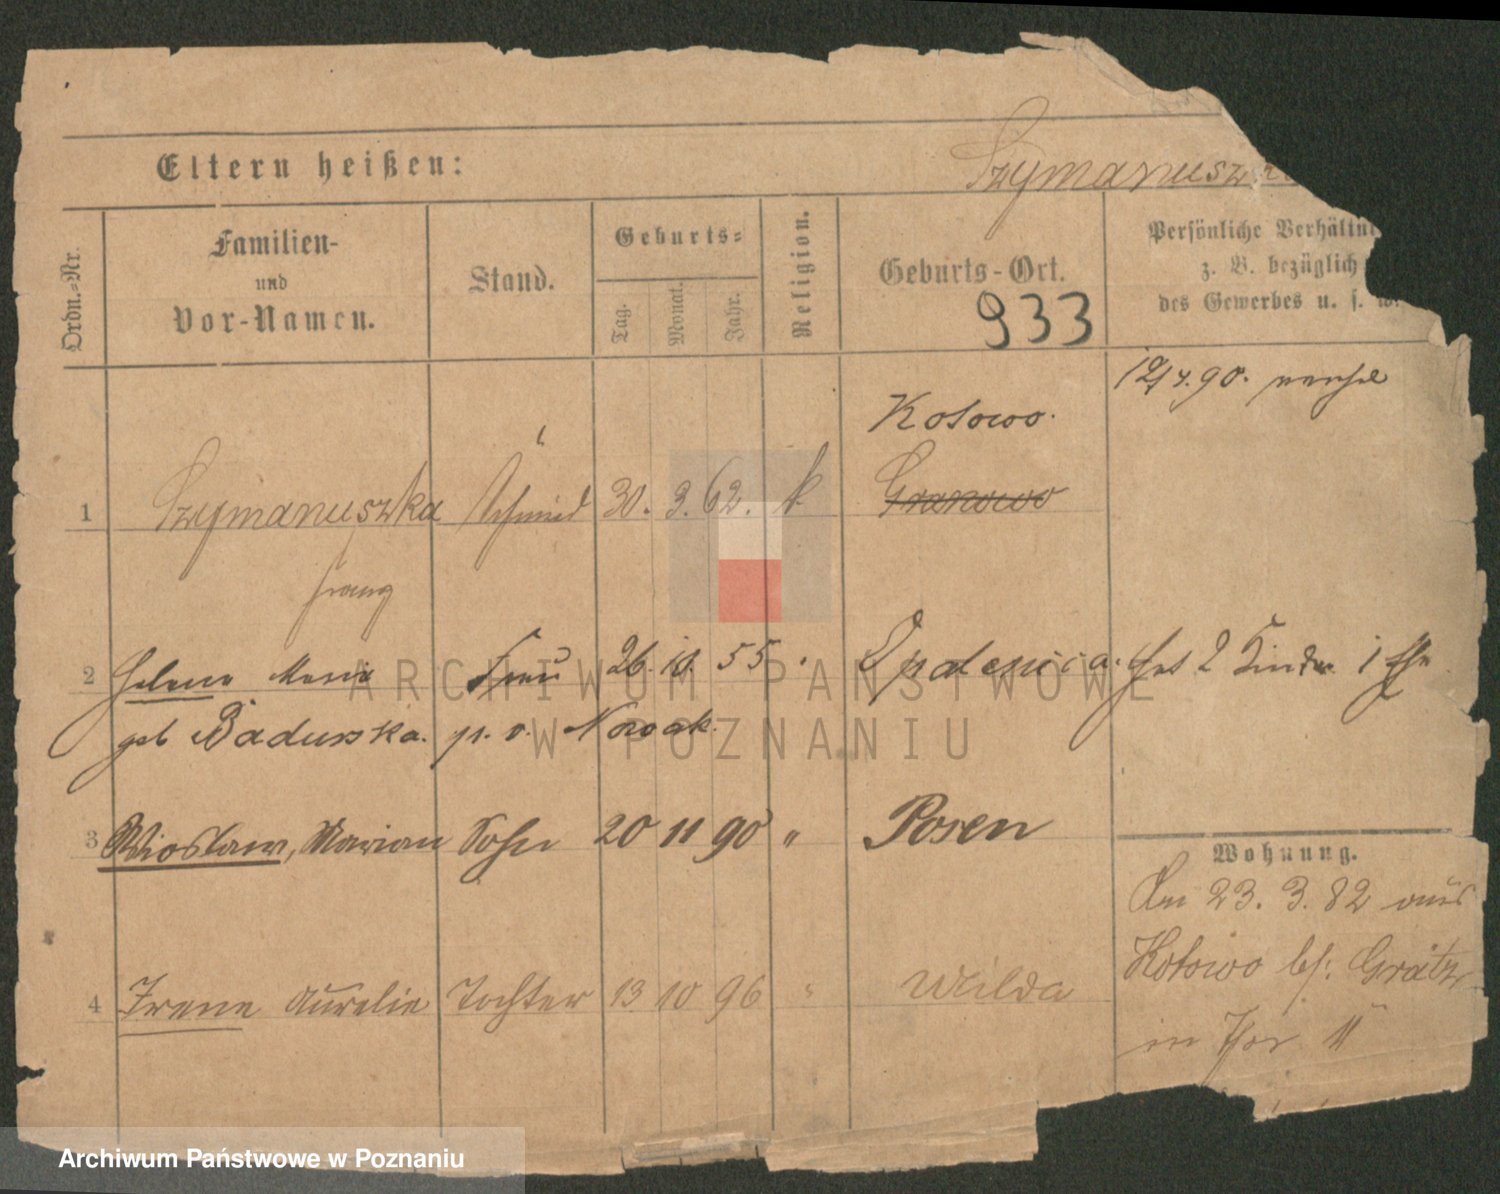 Eltern heißen:
Szymanuszka
Ordn.-Nr.
Familien-
und
Vor-Namen.
Stand.
Geburts-
Tag.
Monat.
Jahr.
Religion.
Geburts-Ort.
933
Persönliche Verhältni
z. B. bezüglich
des Gewerbes u. s. w.
12/4.90.
Kotowo.
1 Szymanuszka Schmied 30. 3. 62. k. Granowo
Franz
2 Helene Maria Frau 26. 10. 55 Opalenica. hat 2 Kinder 1 Ehe
geb Badurska. p. v. Nowak.
3 Wiostaw, Marian Sohn 20 11 90 " Posen
Wohnung.
Am 23. 3. 82 aus
Kotowo bei Grätz
in Thor 11
4 Irene Aurelie Tochter 13 10 96 " Wilda
ARCHIWUM PAŃSTWOWE
W POZNANIU
Archiwum Państwowe w Poznaniu